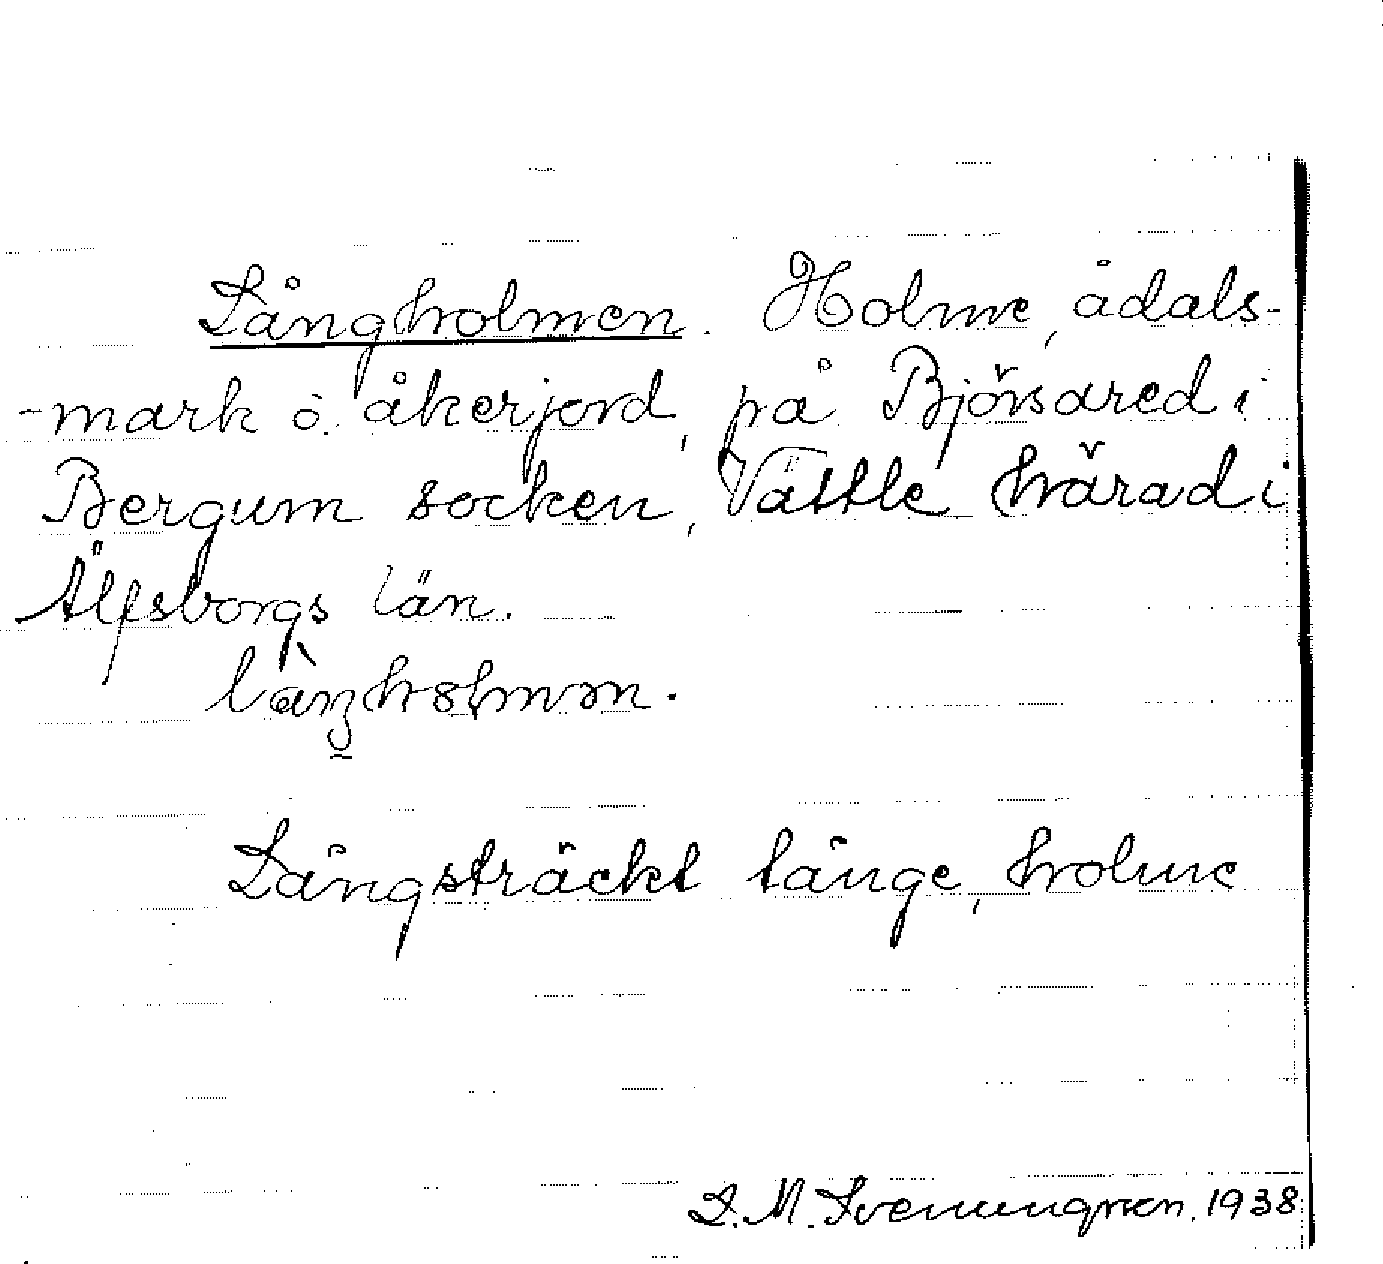 Långholmen. Holme, ådals-
-mark o. åkerjord, på Björsared i
Bergum socken, Vättle härad i
Älfsborgs län.
Långsträckt länge, holme
1938